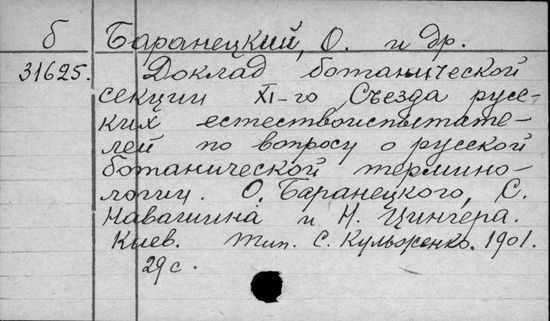 б Баранецкий, О. и др.
31625. Доклад ботанической
секции XI-го Съезда русс-
ких естествоиспытате-
лей по вопросу о русской
ботанической термино-
логии. О. Баранецкого, С.
Навашина и Н. Цингера.
Киев. Тип. С. Кульженко. 1901.
29 с.